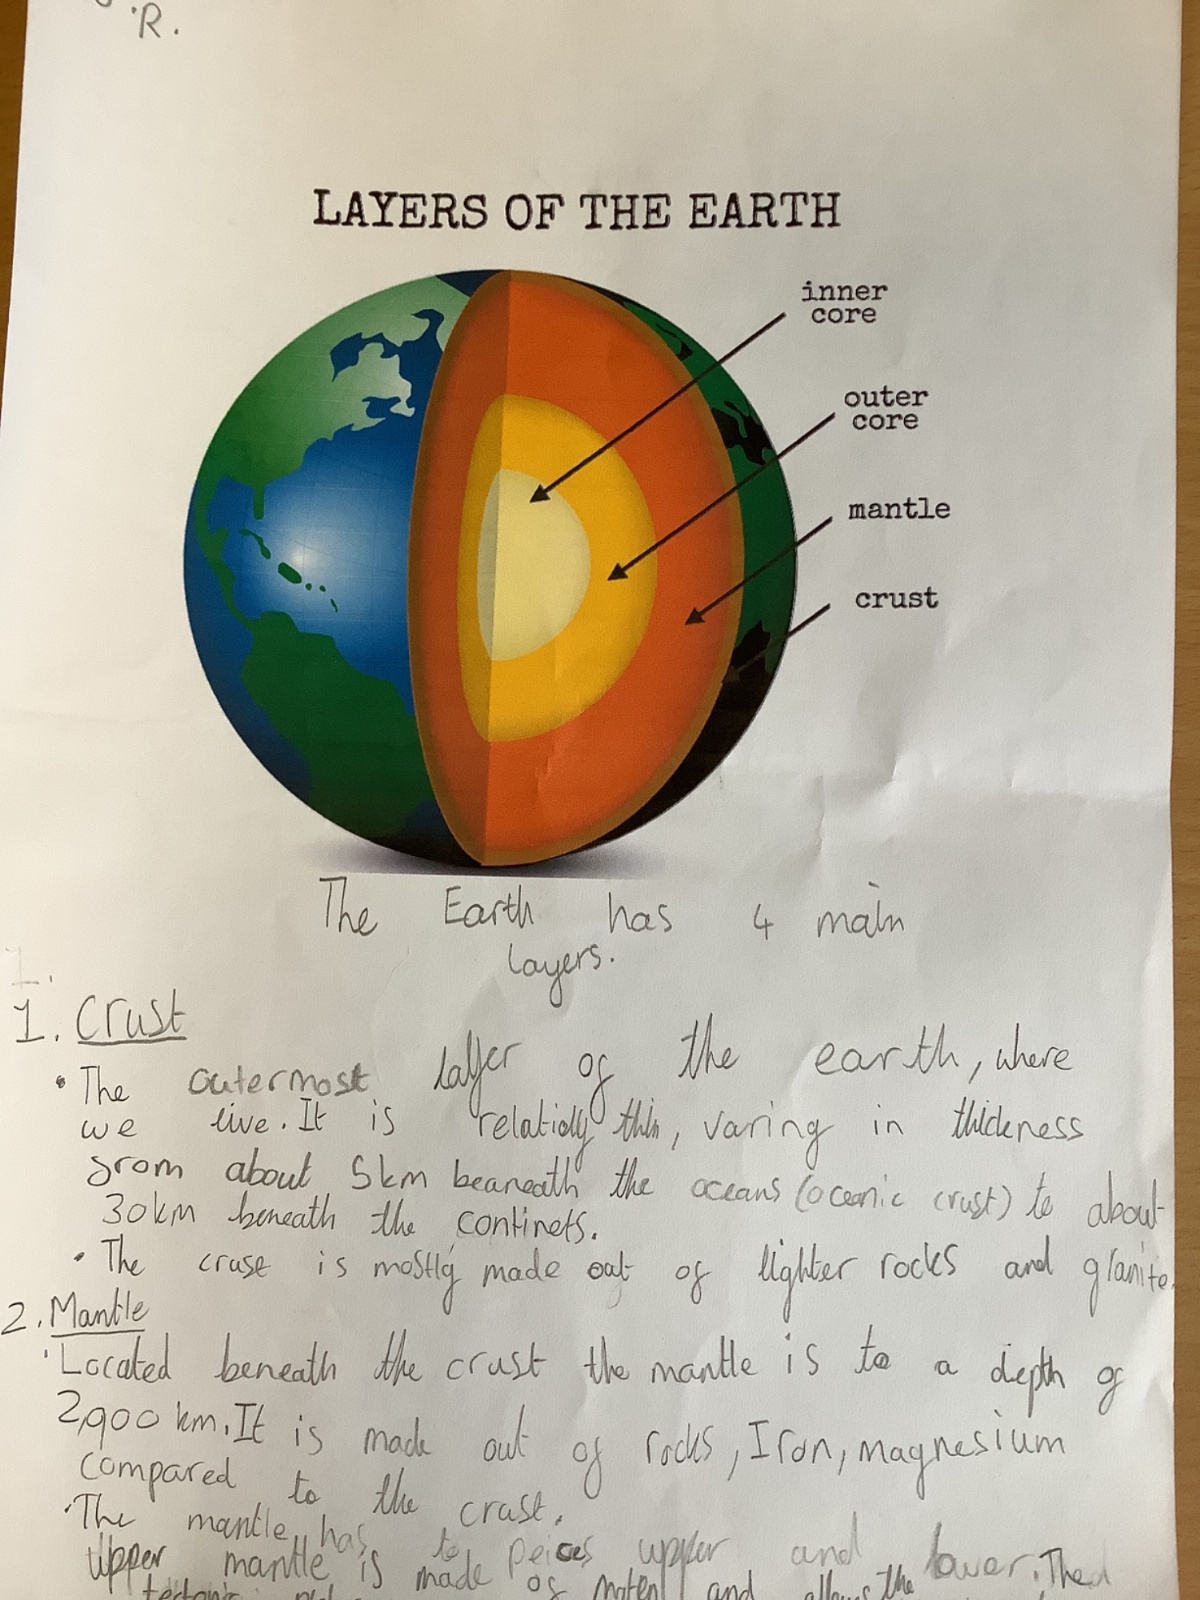 R.
LAYERS OF THE EARTH
inner
core
outer
core
mantle
crust
The Earth has 4 main
layers.
1.
1. Crust
• The outermost layer of the earth, where
we live. It is relatidly thin, varing in thickness
from about 5km beaneath the oceans (oceanic crust) to about
30km beneath the continets.
• The cruse is mostly made out of lighter rocks and granite.
2. Mantle
• Located beneath the crust the mantle is to a depth of
2,900 km. It is made out of rocks, Iron, magnesium
compared to the crust.
• The mantle has to peices upper and lower. The
Upper mantle is made of and allows the